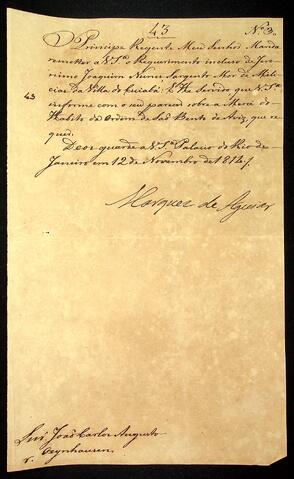 43
N.º 3.
O Principe Regente Meu Senhor Manda
remetter a V. S.ª o Requerimento incluso de Jero-
nimo Joaquim Nunes Sargento Mor de Mili-
cias da Villa do Cuiabá: E He Servido que V. S.ª
43
informe com o seu parecer sobre a Mercê do
Habito da Ordem de São Bento de Aviz, que re-
quer.
Deos guarde a V. S.ª Palacio do Rio de
Janeiro em 12 de Novembro de 1814
Marquez de Aguiar
Snr. João Carlos Augusto
Oeynhausen.